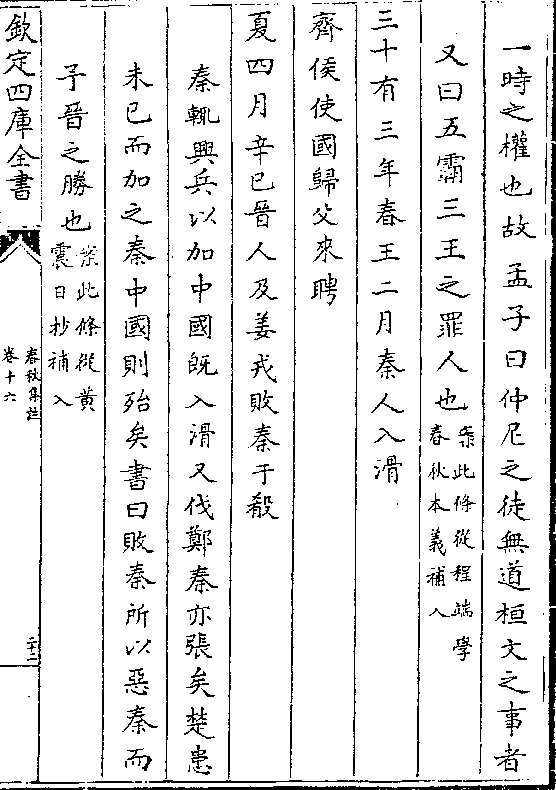 一時之權也故孟子曰仲尼之徒無道桓文之事者
又曰五霸三王之罪人也案此條從程端學
春秋本義補入
三十有三年春王二月秦人入滑
齊侯使國歸父來聘
夏四月辛巳晉人及姜戎敗秦于殽
秦輒興兵以加中國既入滑又伐鄭秦亦張矣楚患
未已而加之秦中國則殆矣書曰敗秦所以惡秦而
予晉之勝也案此條從黃
震日抄補入
欽定四庫全書
春秋集註
卷十六
二十二